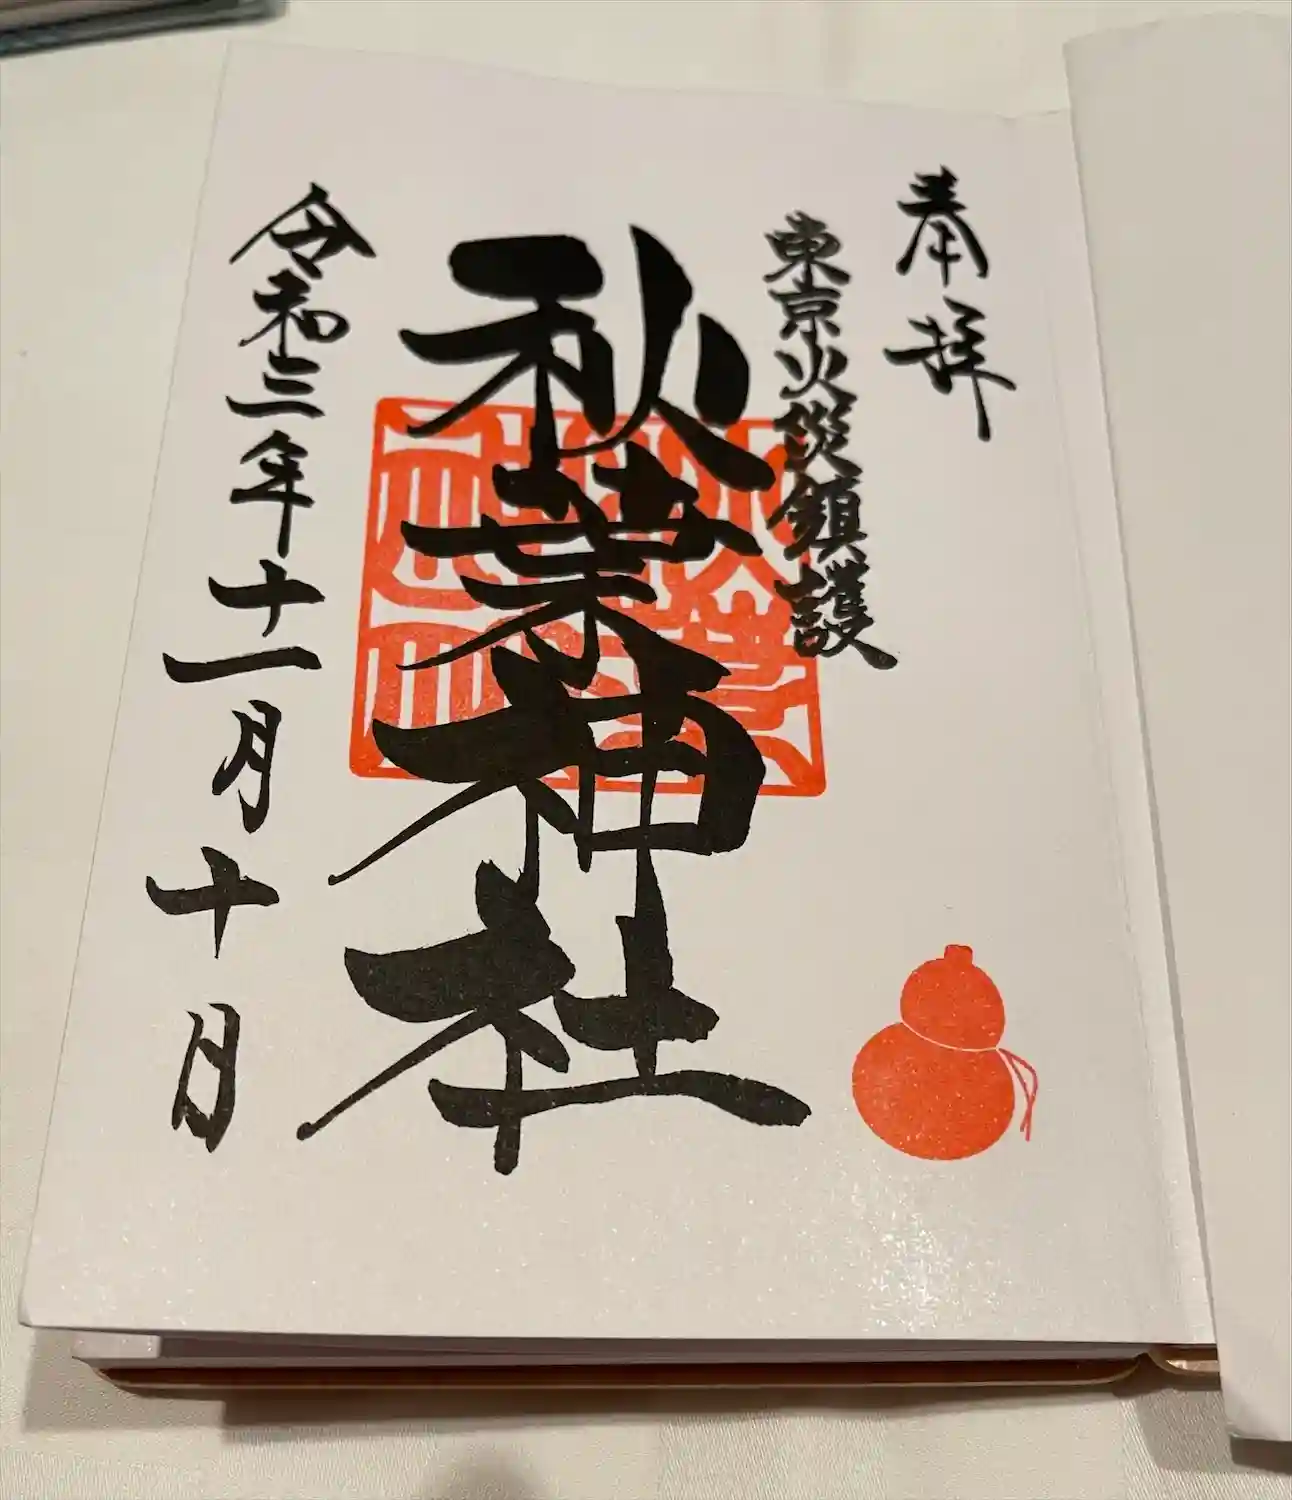 奉拝
東京火災鎮護
秋葉神社
令和三年十一月十日